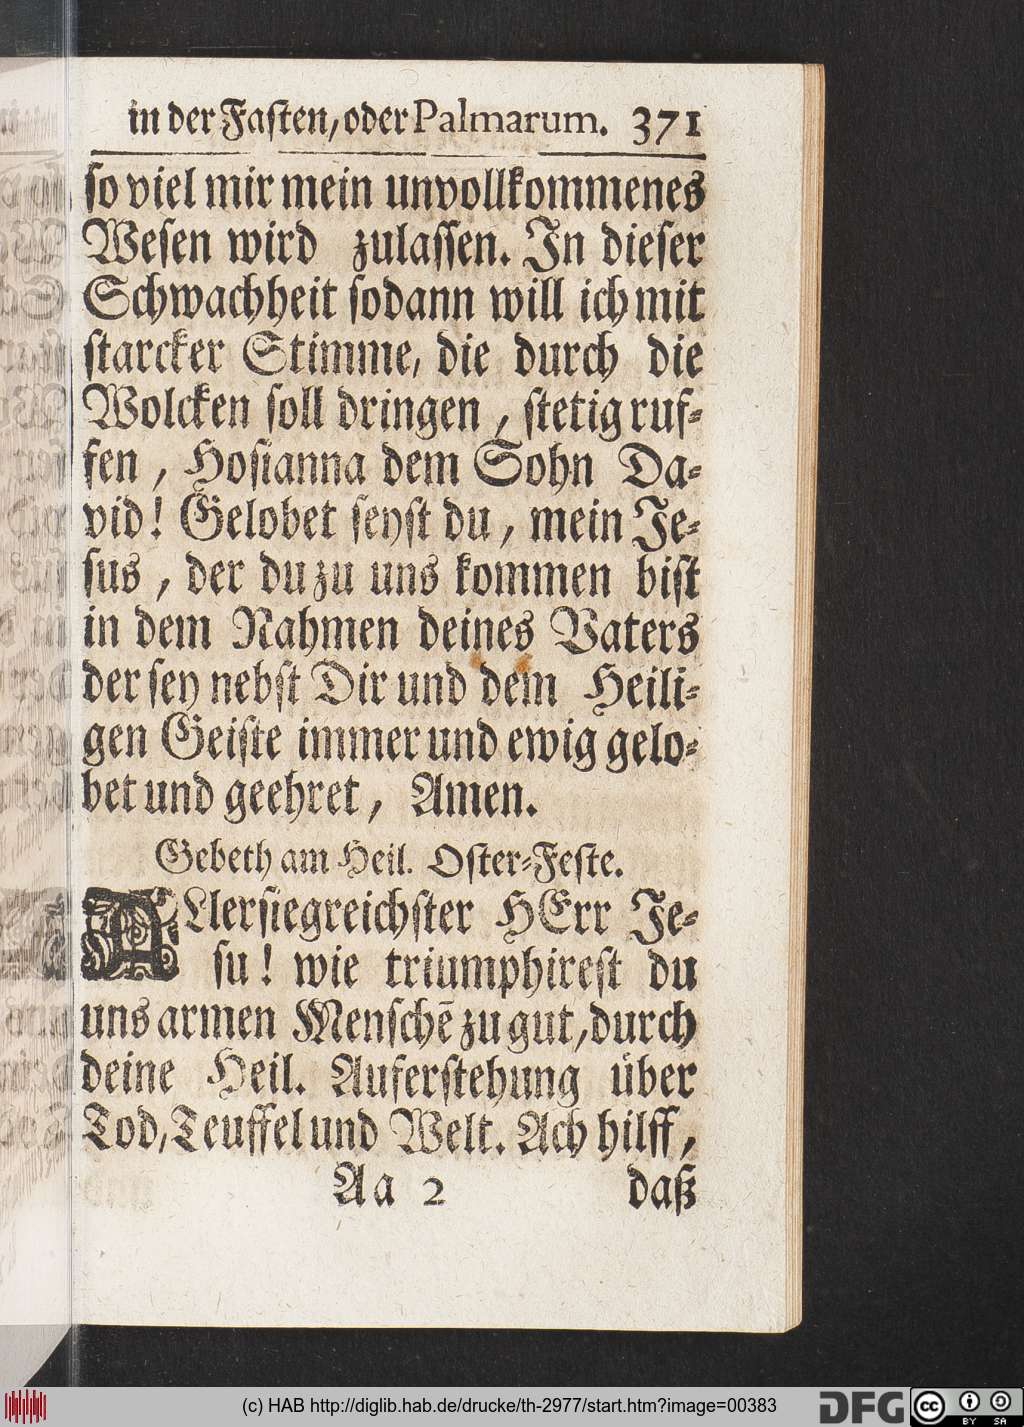 in der Faſten, oder Palmarum. 371
ſo viel mir mein unvollkommenes
Weſen wird zulaſſen. In dieſer
Schwachheit ſodann will ich mit
ſtarcker Stimme, die durch die
Wolcken ſoll dringen, ſtetig ruf⸗
fen, Hoſianna dem Sohn Da⸗
vid! Gelobet ſeyſt du, mein Je⸗
ſus, der du zu uns kommen biſt
in dem Nahmen deines Vaters
der ſey nebſt Dir und dem Heili⸗
gen Geiſte immer und ewig gelo⸗
bet und geehret, Amen.
Gebeth am Heil. Oſter⸗Feſte.
ALlerſiegreichſter HErr Je⸗
ſu! wie triumphireſt du
uns armen Menſchē zu gut, durch
deine Heil. Auferſtehung über
Tod, Teuffel und Welt. Ach hilff,
Aa 2 daß
(c) HAB http://diglib.hab.de/drucke/th-2977/start.htm?image=00383
DFG cc BY SA